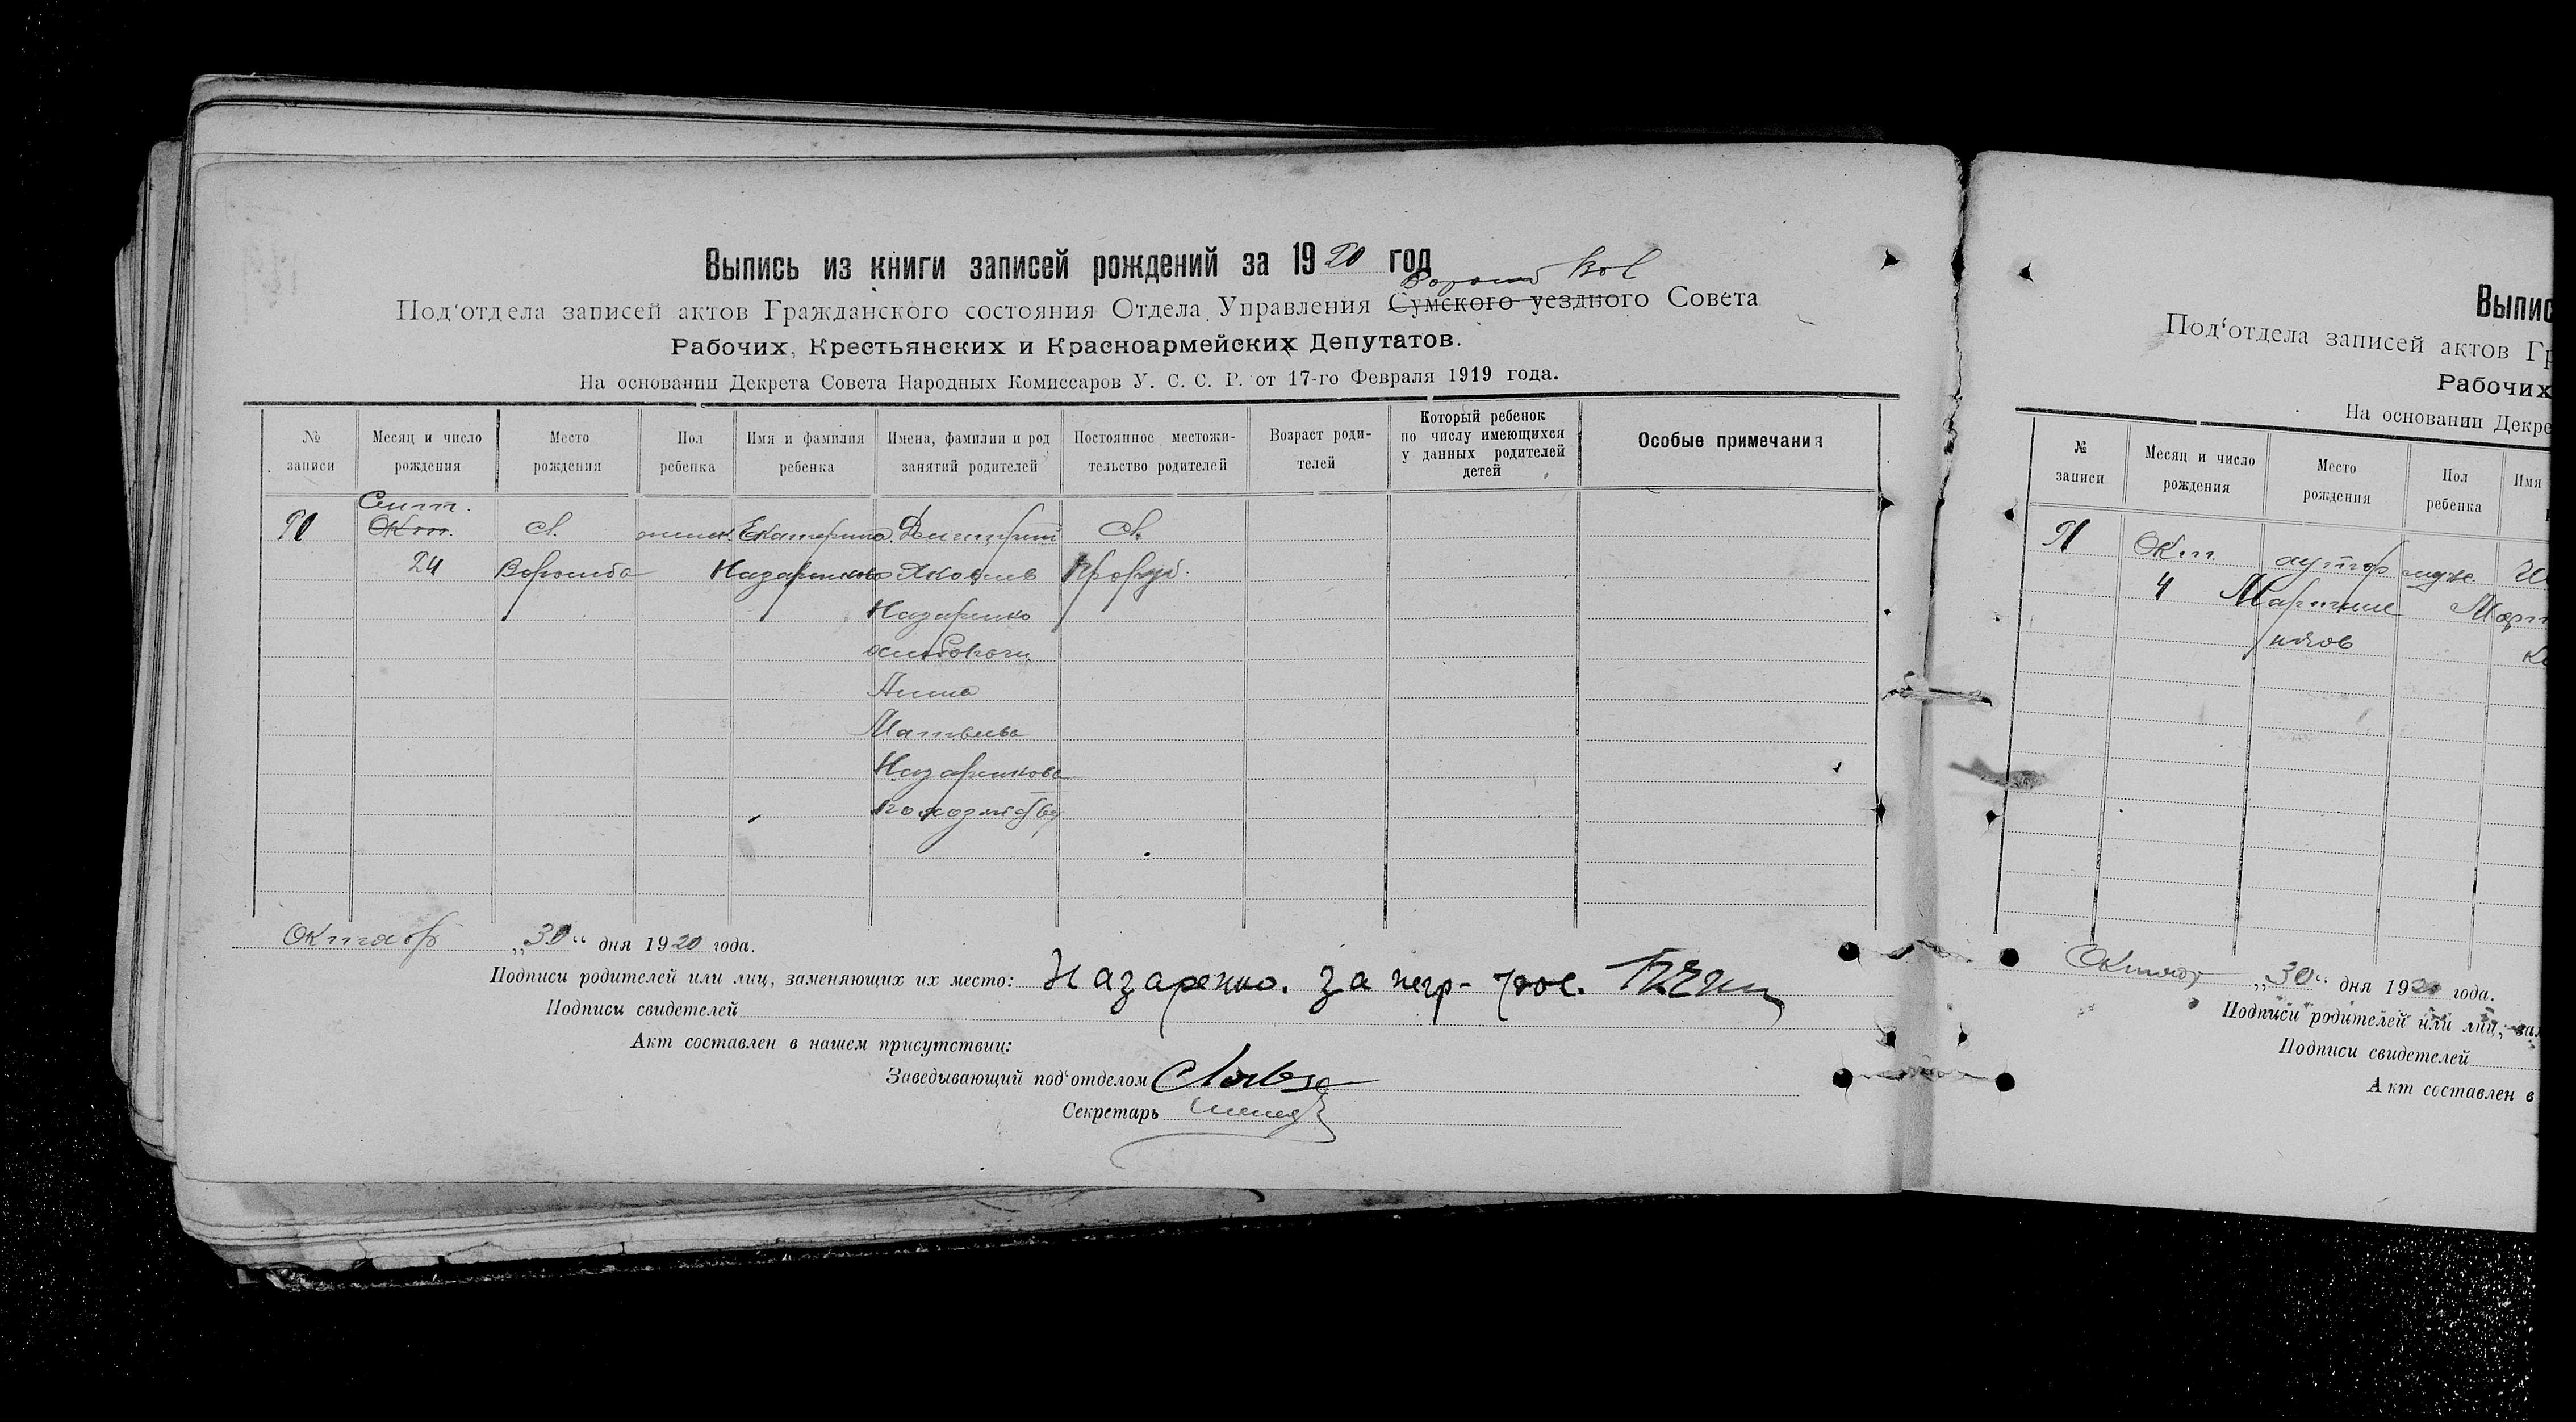 Выпись из книги записей рождений за 1920 год
Вол
Под'отдела записей актов Гражданского состояния Отдела Управления Сумского уездного Совета
Рабочих, Крестьянских и Красноармейских Депутатов.
На основании Декрета Совета Народных Комиссаров У. С. С. Р. от 17-го Февраля 1919 года.
№ записи
Месяц и число рождения
Место рождения
Пол ребенка
Имя и фамилия ребенка
Имена, фамилии и род занятий родителей
Постоянное местожительство родителей
Возраст родителей
Который ребенок по числу имеющихся у данных родителей детей
Особые примечания
Сент.
Окт. сл. женск. Екатерина Дмитрий сл.
24 Ворожба Назаренкова Яковлев
Назаренко
Анна
Матвеева
Назаренкова
Октября „30“ дня 1920 года.
Подписи родителей или лиц, заменяющих их место: Назаренко. За негр-
Подписи свидетелей
Акт составлен в нашем присутствии:
Заведывающий под'отделом
Секретарь
Выпис
Под'отдела записей актов Гр
Рабочих
На основании Декре
№ записи
Месяц и число рождения
Место рождения
Пол ребенка
Имя
91 Окт хутор муж.
4
Октябр „30“ дня 1920 года.
Подписи родителей или лиц, за
Подписи свидетелей
Акт составлен в